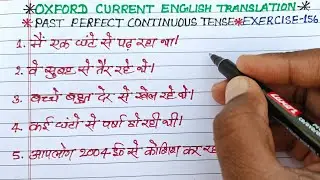 *OXFORD CURRENT ENGLISH TRANSLATION*
*PAST PERFECT CONTINUOUS TENSE*EXERCISE-156
1. मैं एक घंटे से पढ़ रहा था।
2. वे सुबह से तैर रहे थे।
3. बच्चे बहुत देर से खेल रहे थे।
4. कई घंटो से वर्षा हो रही थी।
5. आपलोग 2004 ई० से कोशिश कर रह